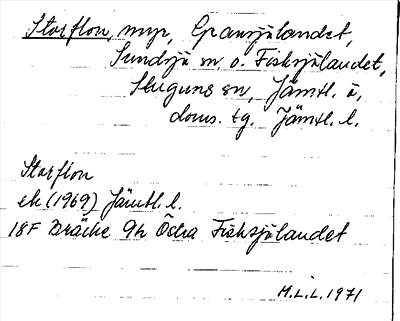 Storflon, myr, Gransjölandet,
Sundsjö sn o. Fisksjölandet,
Stuguns sn, Jämtl. ö,
doms. tg. Jämtl. l.
Storflon
ek (1969) Jämtl. l.
18F Bräcke 9h Östra Fisksjölandet
M.L.L. 1971